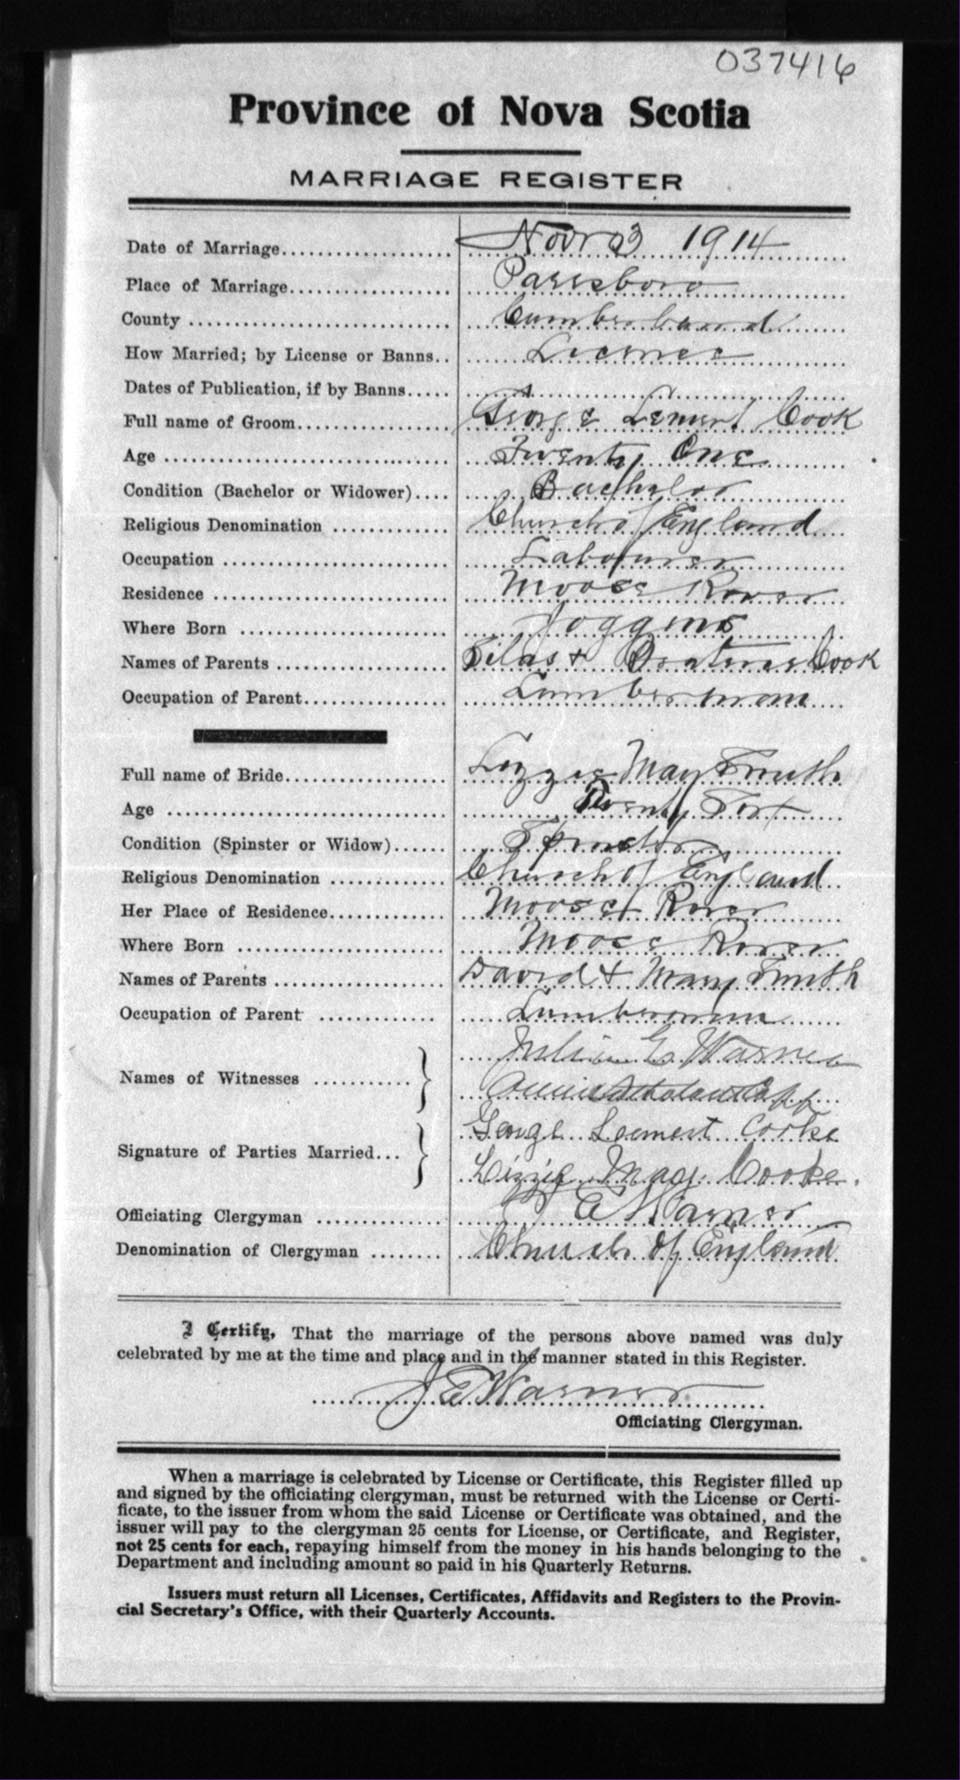 037416
Province of Nova Scotia
MARRIAGE REGISTER
Date of Marriage Novr 3 1914
Place of Marriage Parrsboro
County Cumberland
How Married; by License or Banns Licence
Dates of Publication, if by Banns
Full name of Groom George Lemert Cook
Age Twenty One
Condition (Bachelor or Widower) Bachelor
Religious Denomination Church of England
Occupation Labourer
Residence Moose River
Where Born Joggins
Names of Parents Silas & Beatrice Cook
Occupation of Parent Lumberman
Full name of Bride Lizzie May Smith
Age Twenty
Condition (Spinster or Widow) Spinster
Religious Denomination Church of England
Her Place of Residence Moose River
Where Born Moose River
Names of Parents David & Mary Smith
Occupation of Parent Lumberman
Names of Witnesses G. Warner
Signature of Parties Married George Loemert Cooke
Lizzie May Cooke.
Officiating Clergyman J E Warner
Denomination of Clergyman Church of England
I Certify, That the marriage of the persons above named was duly
celebrated by me at the time and place and in the manner stated in this Register.
J E Warner
Officiating Clergyman.
When a marriage is celebrated by License or Certificate, this Register filled up
and signed by the officiating clergyman, must be returned with the License or Certi-
ficate, to the issuer from whom the said License or Certificate was obtained, and the
issuer will pay to the clergyman 25 cents for License, or Certificate, and Register,
not 25 cents for each, repaying himself from the money in his hands belonging to the
Department and including amount so paid in his Quarterly Returns.
Issuers must return all Licenses, Certificates, Affidavits and Registers to the Provin-
cial Secretary's Office, with their Quarterly Accounts.